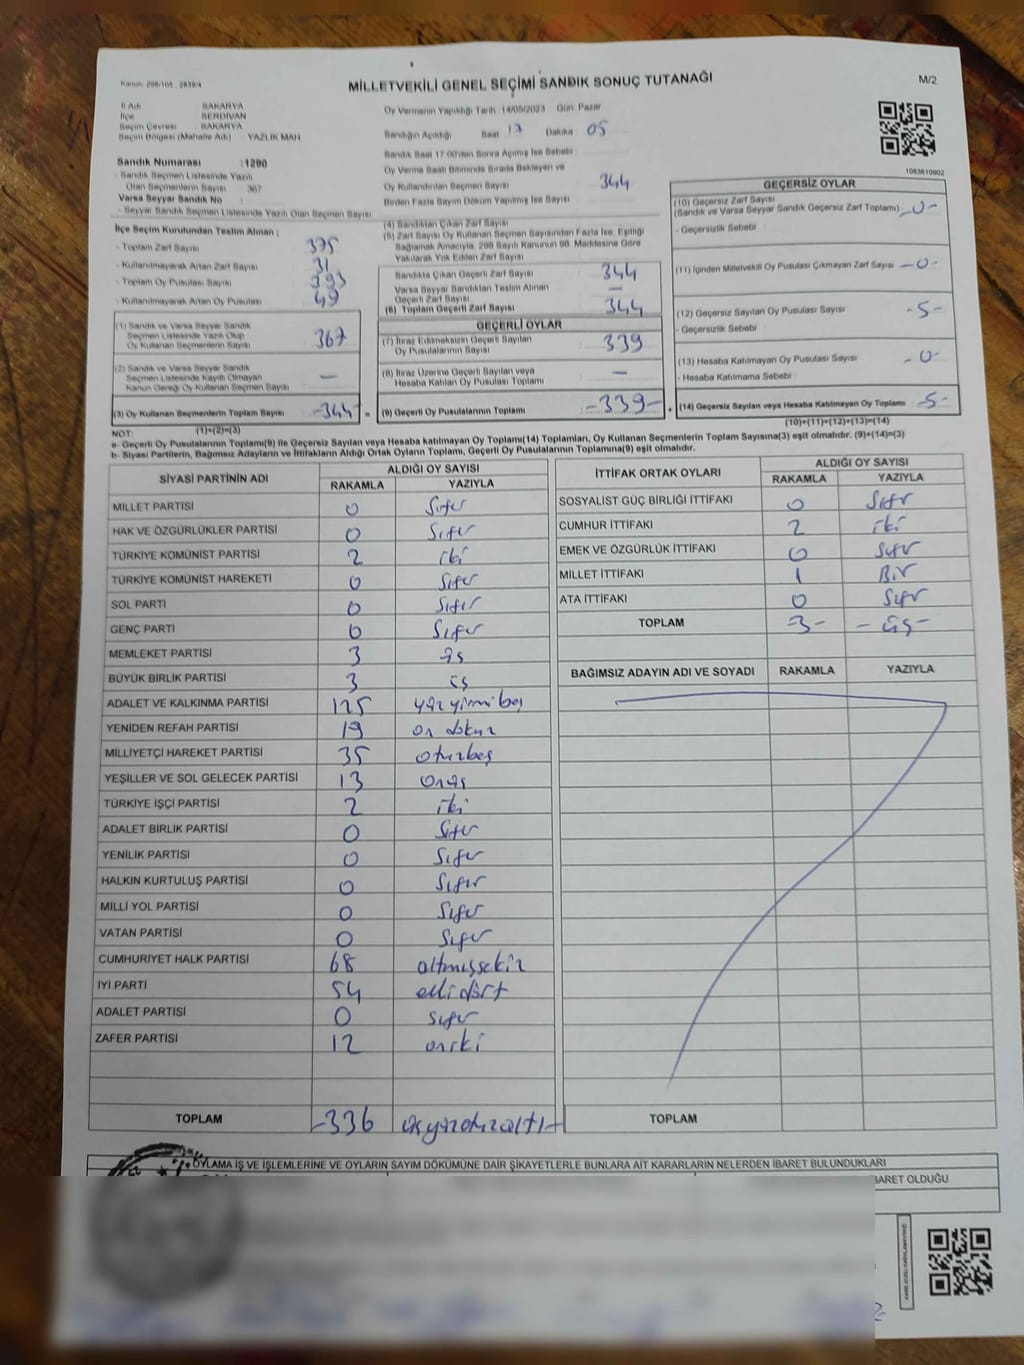 Kanun: 298/105 , 2839/4
MİLLETVEKİLİ GENEL SEÇİMİ SANDIK SONUÇ TUTANAĞI
M/2
İl Adı SAKARYA
İlçe SERDİVAN
Seçim Çevresi SAKARYA
Seçim Bölgesi (Mahalle Adı) : YAZLIK MAH
Sandık Numarası :1290
- Sandık Seçmen Listesinde Yazılı
Olan Seçmenlerin Sayısı : 367
Varsa Seyyar Sandık No
- Seyyar Sandık Seçmen Listesinde Yazılı Olan Seçmen Sayısı
Oy Vermenin Yapıldığı Tarih :14/05/2023 Gün: Pazar
Sandığın Açıldığı Saat 17 Dakika : 05
Sandık Saat 17:00'den Sonra Açılmış İse Sebebi :
Oy Verme Saati Bitiminde Sırada Bekleyen ve
Oy Kullandırılan Seçmen Sayısı 344
Birden Fazla Sayım Döküm Yapılmış İse Sayısı
1083810902
İlçe Seçim Kurulundan Teslim Alınan ;
- Toplam Zarf Sayısı 375
- Kullanılmayarak Artan Zarf Sayısı 31
- Toplam Oy Pusulası Sayısı 393
- Kullanılmayarak Artan Oy Pusulası 49
(1) Sandık ve Varsa Seyyar Sandık
Seçmen Listesinde Yazılı Olup
Oy Kullanan Seçmenlerin Sayısı 367
(2) Sandık ve Varsa Seyyar Sandık
Seçmen Listesinde Kayıtlı Olmayan
Kanun Gereği Oy Kullanan Seçmen Sayısı : —
(3) Oy Kullanan Seçmenlerin Toplam Sayısı -344- =
(1)+(2)=(3)
(4) Sandıktan Çıkan Zarf Sayısı
(5) Zarf Sayısı Oy Kullanan Seçmen Sayısından Fazla İse, Eşitliği
Sağlamak Amacıyla, 298 Sayılı Kanunun 98. Maddesine Göre
Yakılarak Yok Edilen Zarf Sayısı
Sandıkta Çıkan Geçerli Zarf Sayısı 344
Varsa Seyyar Sandıktan Teslim Alınan
Geçerli Zarf Sayısı —
(6) Toplam Geçerli Zarf Sayısı 344
GEÇERLİ OYLAR
(7) İtiraz Edilmeksizin Geçerli Sayılan
Oy Pusulalarının Sayısı 339
(8) İtiraz Üzerine Geçerli Sayılan veya
Hesaba Katılan Oy Pusulası Toplamı —
(9) Geçerli Oy Pusulalarının Toplamı -339- +
GEÇERSİZ OYLAR
(10) Geçersiz Zarf Sayısı
(Sandık ve Varsa Seyyar Sandık Geçersiz Zarf Toplamı) -0-
- Geçersizlik Sebebi :
(11) İçinden Milletvekili Oy Pusulası Çıkmayan Zarf Sayısı -0-
(12) Geçersiz Sayılan Oy Pusulası Sayısı -5-
- Geçersizlik Sebebi :
(13) Hesaba Katılmayan Oy Pusulası Sayısı -0-
- Hesaba Katılmama Sebebi :
(14) Geçersiz Sayılan veya Hesaba Katılmayan Oy Toplamı : -5-
(10)+(11)+(12)+(13)=(14)
NOT:
a- Geçerli Oy Pusulaları Toplamı(9) ile Geçersiz Sayılan veya Hesaba katılmayan Oy Toplamı(14) Toplamları, Oy Kullanan Seçmenlerin Toplam Sayısına(3) eşit olmalıdır. (9)+(14)=(3)
b- Siyasi Partilerin, Bağımsız Adayların ve İttifakların Aldığı Ortak Oyların Toplamı, Geçerli Oy Pusulalarının Toplamına(9) eşit olmalıdır.
SİYASİ PARTİNİN ADI ALDIĞI OY SAYISI
RAKAMLA YAZIYLA
MİLLET PARTİSİ 0 Sıfır
HAK VE ÖZGÜRLÜKLER PARTİSİ 0 Sıfır
TÜRKİYE KOMÜNİST PARTİSİ 2 iki
TÜRKİYE KOMÜNİST HAREKETİ 0 Sıfır
SOL PARTİ 0 Sıfır
GENÇ PARTİ 0 Sıfır
MEMLEKET PARTİSİ 3 üç
BÜYÜK BİRLİK PARTİSİ 3 üç
ADALET VE KALKINMA PARTİSİ 125 yüz yirmi beş
YENİDEN REFAH PARTİSİ 19 on dokuz
MİLLİYETÇİ HAREKET PARTİSİ 35 otuzbeş
YEŞİLLER VE SOL GELECEK PARTİSİ 13 onüç
TÜRKİYE İŞÇİ PARTİSİ 2 iki
ADALET BİRLİK PARTİSİ 0 Sıfır
YENİLİK PARTİSİ 0 Sıfır
HALKIN KURTULUŞ PARTİSİ 0 Sıfır
MİLLİ YOL PARTİSİ 0 Sıfır
VATAN PARTİSİ 0 Sıfır
CUMHURİYET HALK PARTİSİ 68 altmışsekiz
İYİ PARTİ 54 elli dört
ADALET PARTİSİ 0 sıfır
ZAFER PARTİSİ 12 oniki
TOPLAM -336 üçyüzotuzaltı-
İTTİFAK ORTAK OYLARI ALDIĞI OY SAYISI
RAKAMLA YAZIYLA
SOSYALİST GÜÇ BİRLİĞİ İTTİFAKI 0 Sıfır
CUMHUR İTTİFAKI 2 iki
EMEK VE ÖZGÜRLÜK İTTİFAKI 0 Sıfır
MİLLET İTTİFAKI 1 Bir
ATA İTTİFAKI 0 Sıfır
TOPLAM -3- -üç-
BAĞIMSIZ ADAYIN ADI VE SOYADI RAKAMLA YAZIYLA
TOPLAM
OYLAMA İŞ VE İŞLEMLERİNE VE OYLARIN SAYIM DÖKÜMÜNE DAİR ŞİKAYETLERLE BUNLARA AİT KARARLARIN NELERDEN İBARET BULUNDUKLARI
BARET OLDUĞU